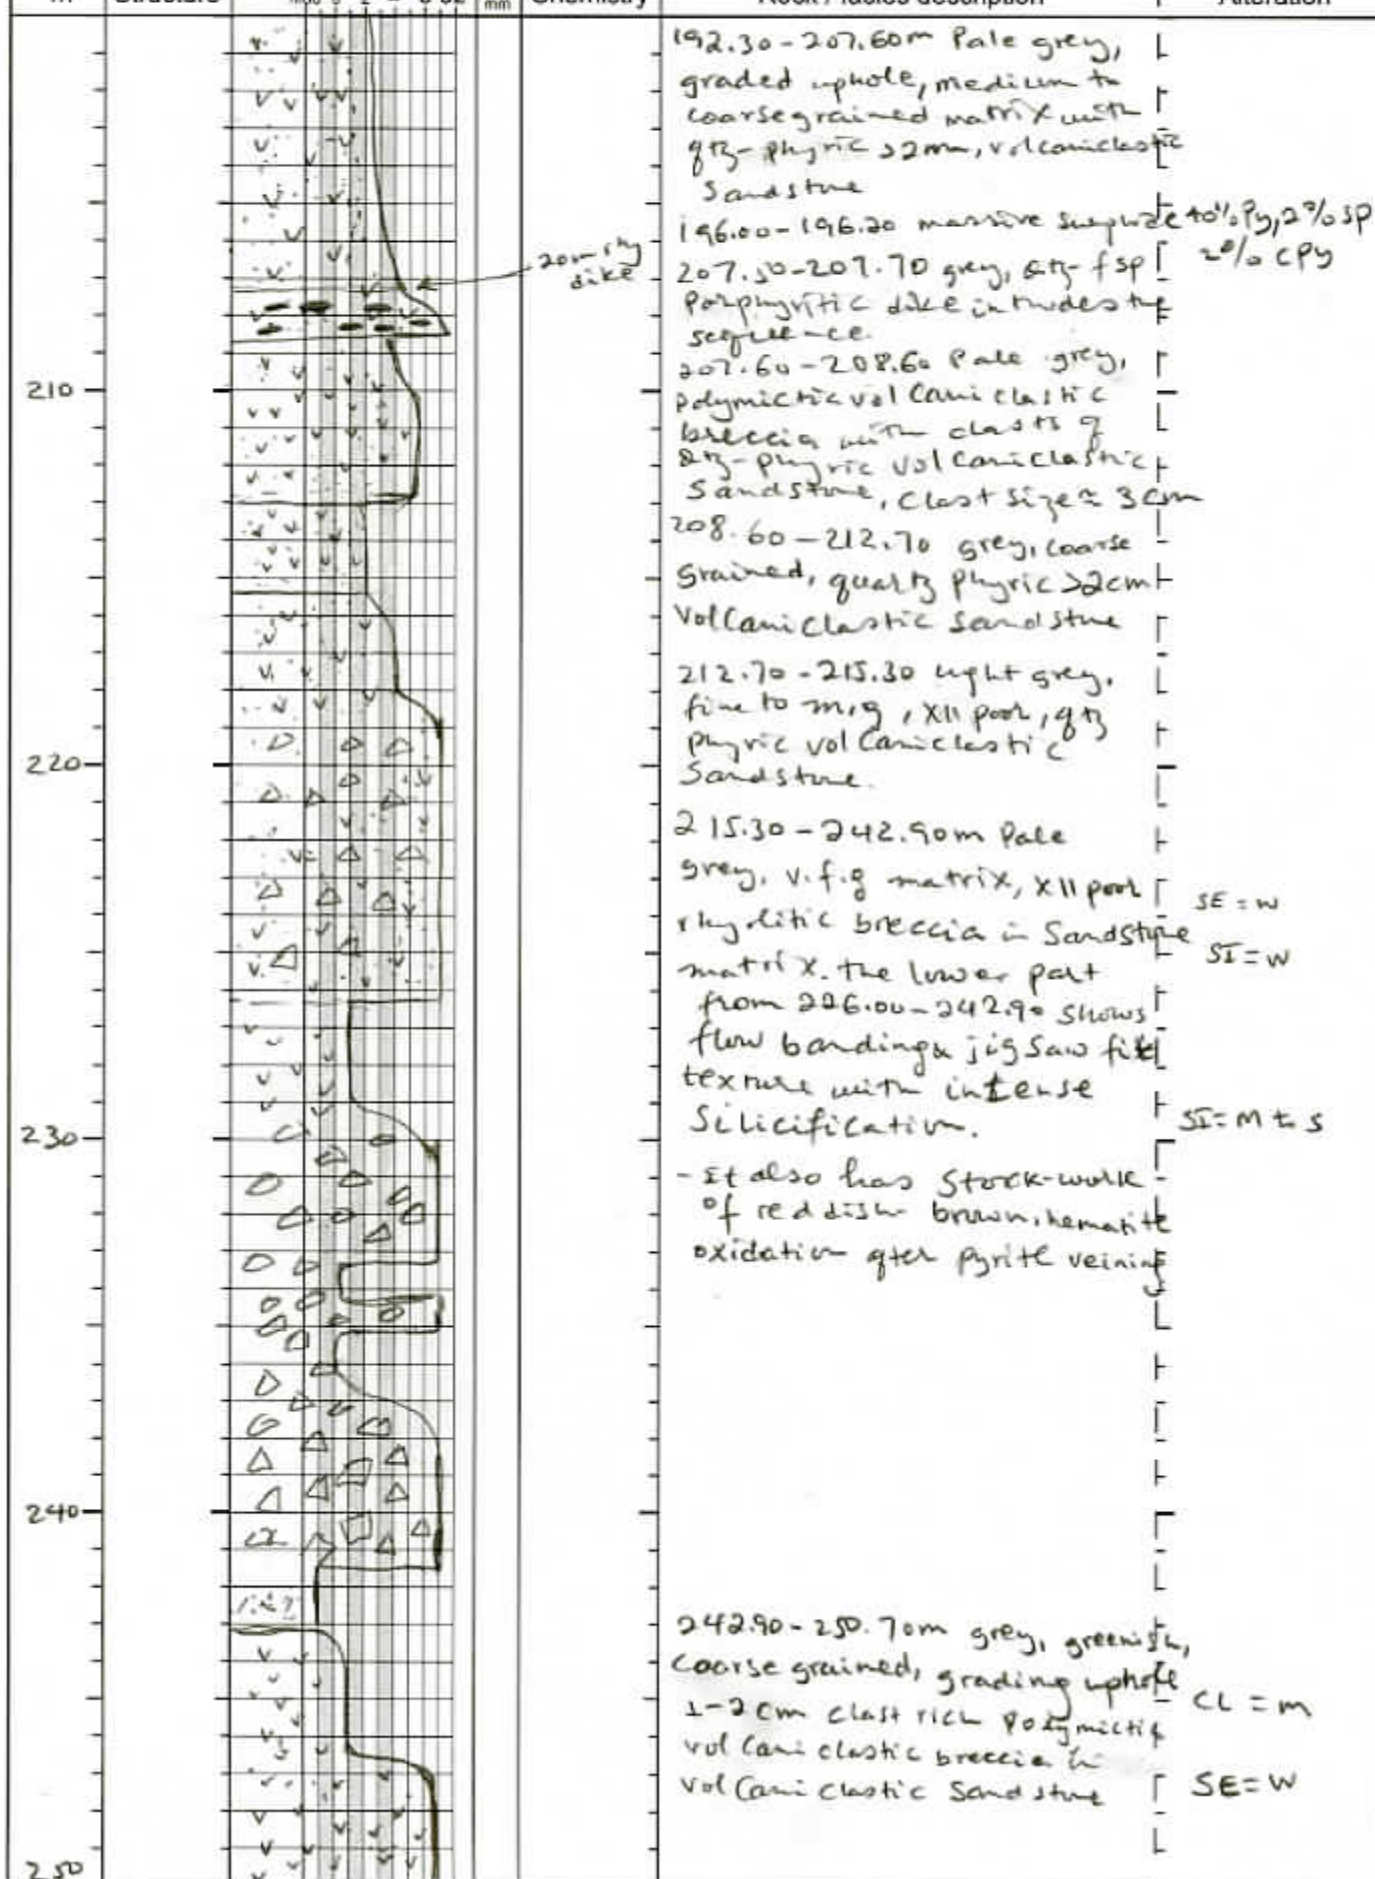 m Structure mud mm Chemistry Rock / facies description Alteration
192.30-207.60m Pale grey,
graded uphole, medium to
coarse grained matrix with
qtz-phyric >2mm, volcaniclastic
Sandstone
196.00-196.20 massive 40% Py, 2% SP
2% CPy
20cm rhy
dike
207.50-207.70 grey, Qtz-fsp
Porphyritic dike intrudes the
sequence.
207.60-208.60 Pale grey,
polymictic volcaniclastic
breccia with clasts of
Qtz-phyric volcaniclastic
Sandstone, Clast size ≈ 3cm
210
208.60-212.70 grey, coarse
grained, quartz phyric >2cm
volcaniclastic Sandstone
212.70-215.30 light grey,
fine to m.g, xll poor, qtz
phyric volcaniclastic
Sandstone.
220
215.30-242.90m Pale
grey, v.f.g matrix, xll poor
rhyolitic breccia in Sandstone
matrix. the lower part
from 226.00-242.90 shows
flow banding & jigsaw fit
texture with intense
Silicification.
SE = w
SI = w
SI = m to s
230
- It also has Stock-work
of reddish brown, hematite
oxidation after pyrite veining
240
242.90-250.70m grey, greenish,
coarse grained, grading uphole
1-2cm clast rich polymictic
volcaniclastic breccia in
volcaniclastic Sandstone
CL = m
SE = W
250